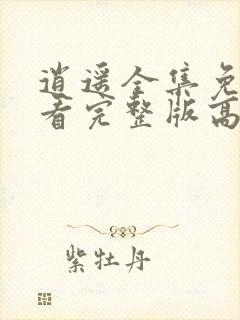 逍遥全集免
看完整版高
紫牡丹